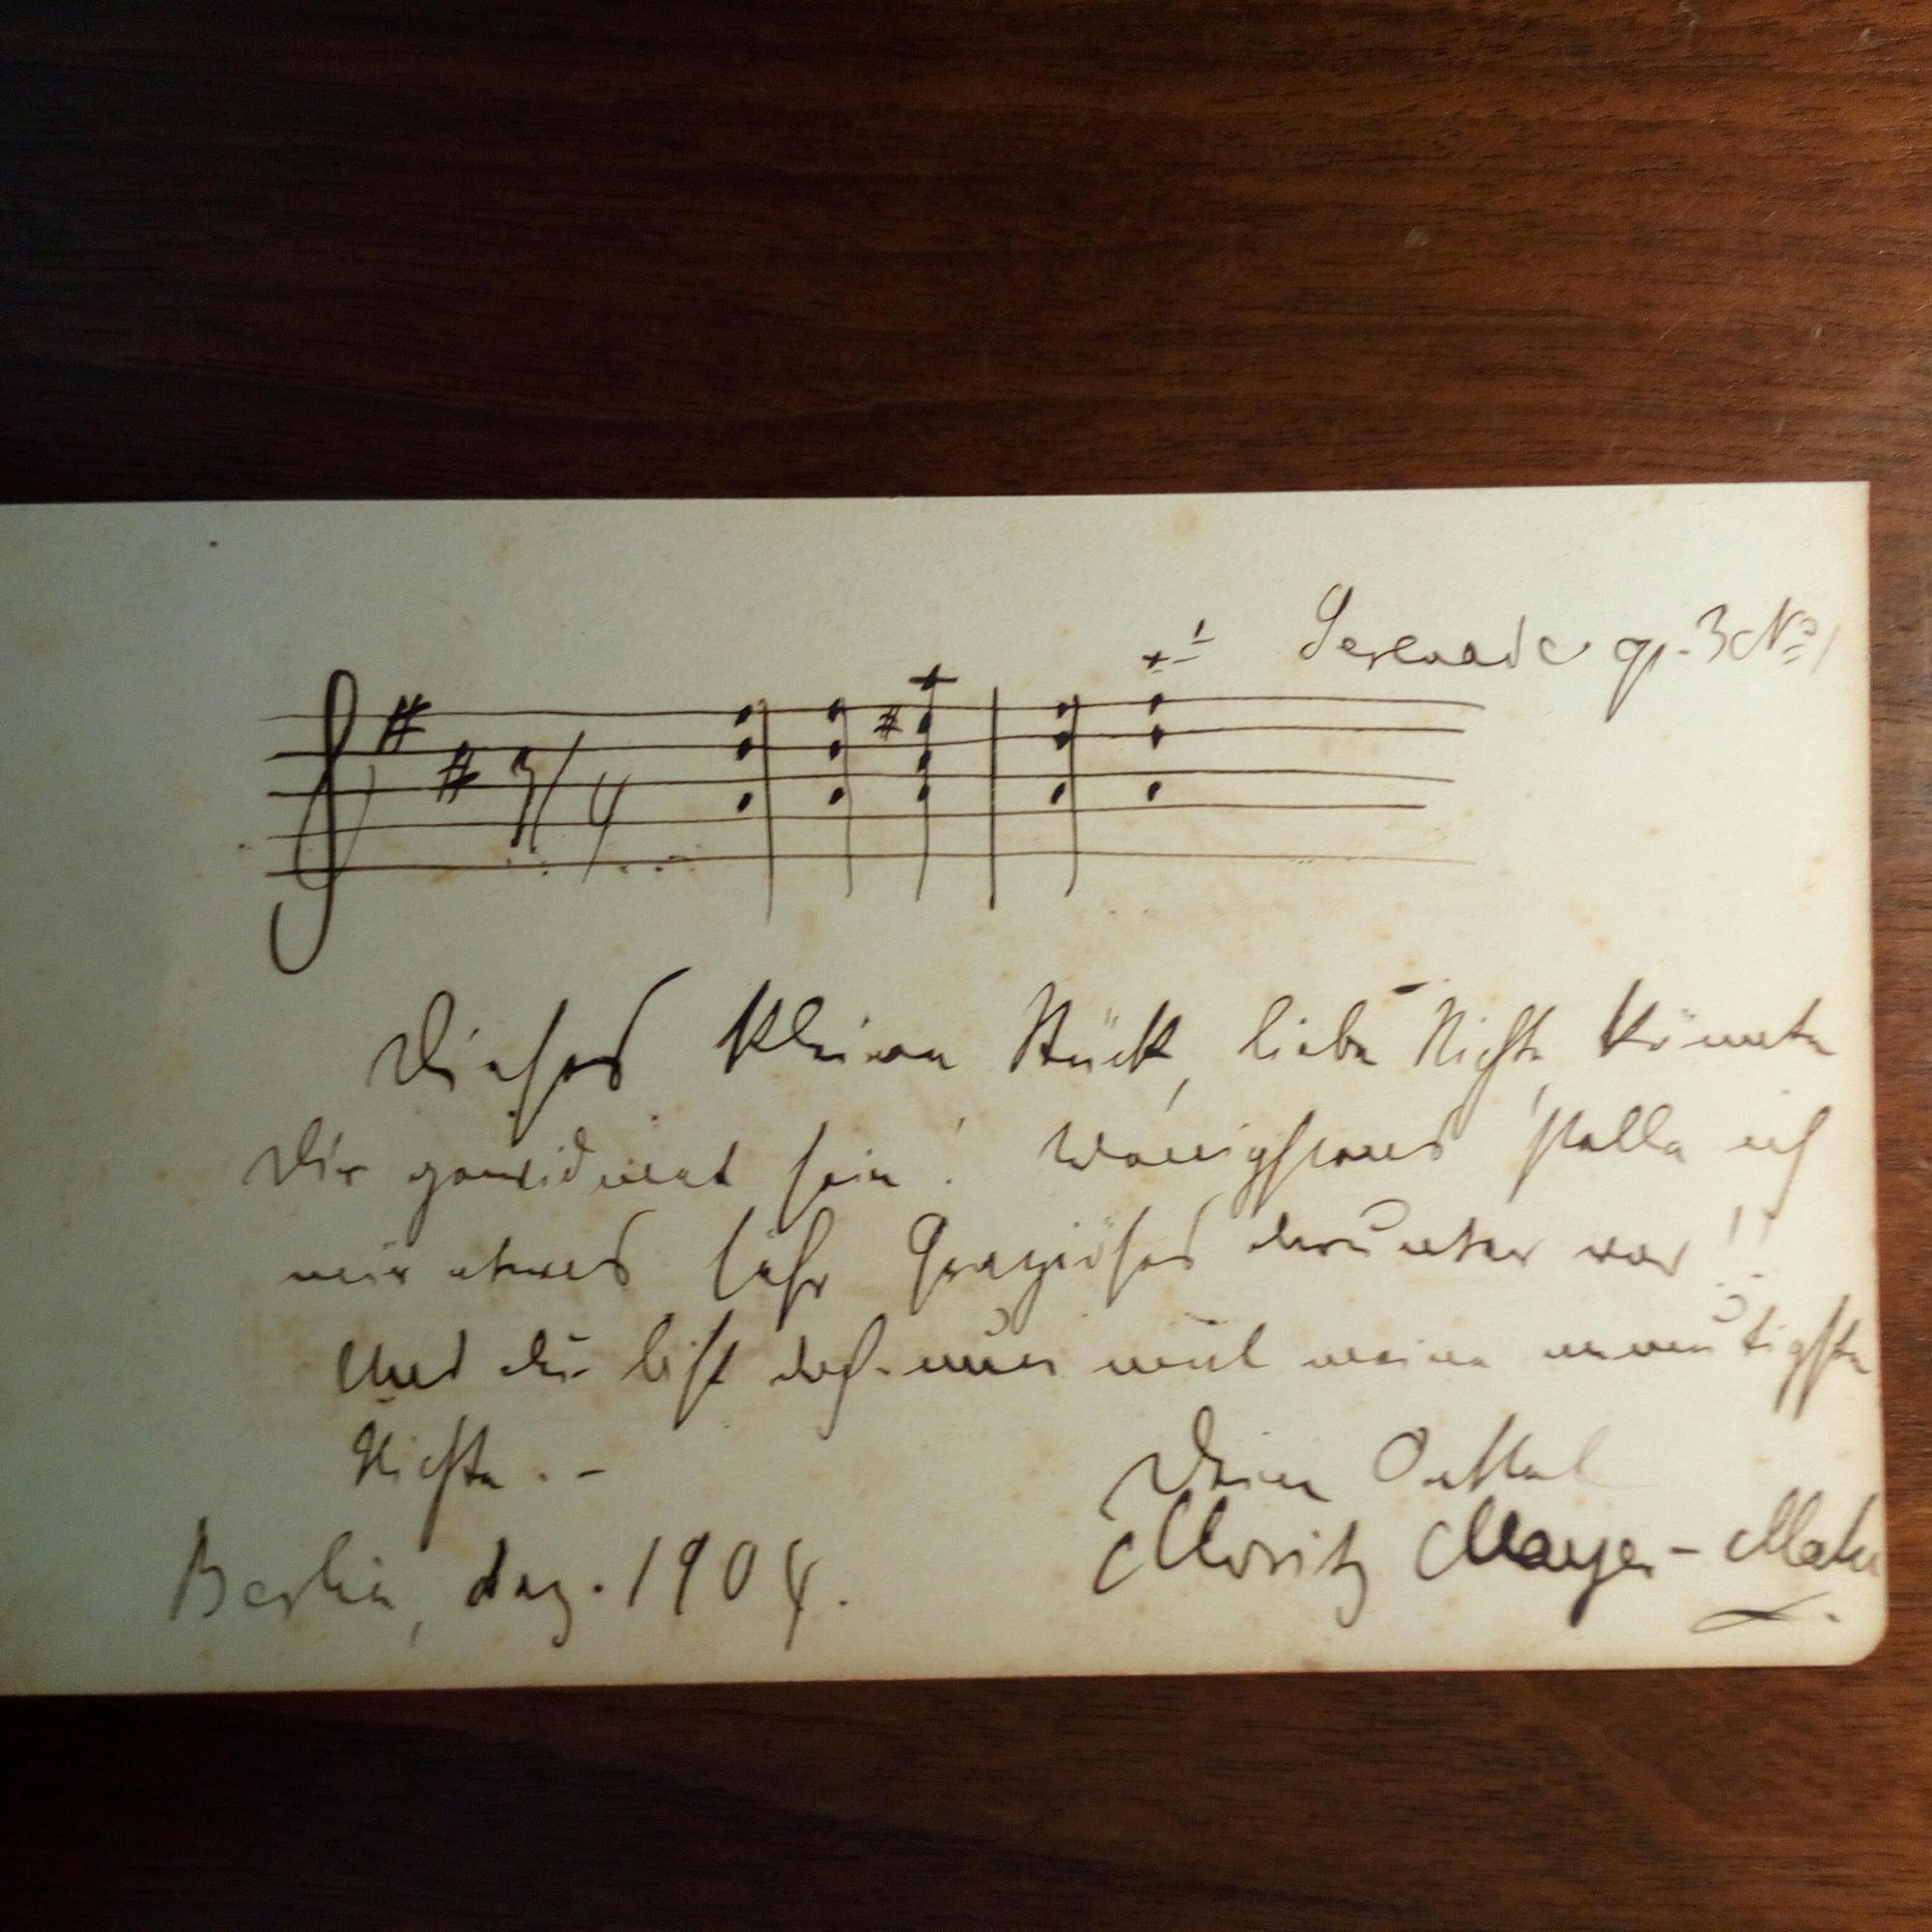 Serenade op. 3 No 1
3/4
Dieses kleine Stück, liebe Nichte, könnte
Dir gewidmet sein! Wenigstens stelle ich
mir etwas sehr Graziöses darunter vor!!
Und du bist doch nun mal meine anmutigste
Nichte. –
Dein Onkel
Moritz Mayer-Mahr
Berlin, Dez. 1904.